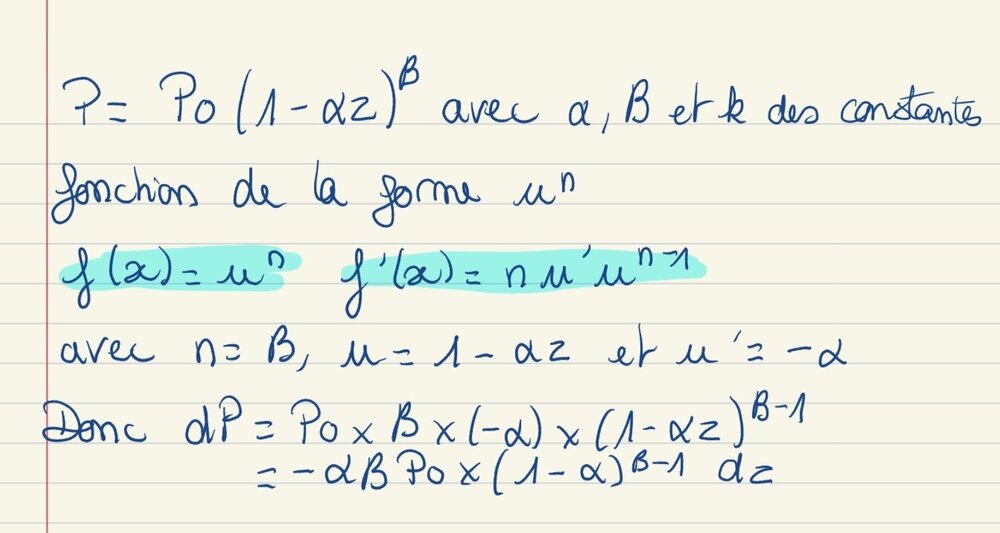 P = Po (1 - αz)^β avec α, β et k des constantes
fonction de la forme u^n
f(x) = u^n f'(x) = n u' u^{n-1}
avec n = β, u = 1 - αz et u' = -α
Donc dP = Po × β × (-α) × (1 - αz)^{β-1}
= -αβ Po × (1 - α)^{β-1} dz